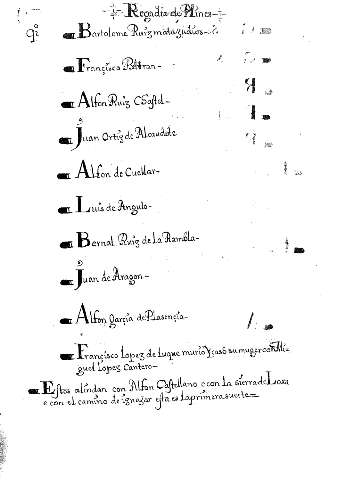 Regadia de Pinos
Bartolome Ruiz matajudios
Francisco Beltran
Alfon Ruiz
Juan Ortiz de
Alfon de Cuellar
Luis de Angulo
Bernal Ruiz de La Rambla
Juan de Aragon
Alfon garcia de Plasencia
Francisco Lopez de luque murio y casó su muger con Mi-
guel Lopez Cantero
Estos alindan con Alfon Castellano e con la sierra de Loxa
e con el camino de esta es la primera suerte